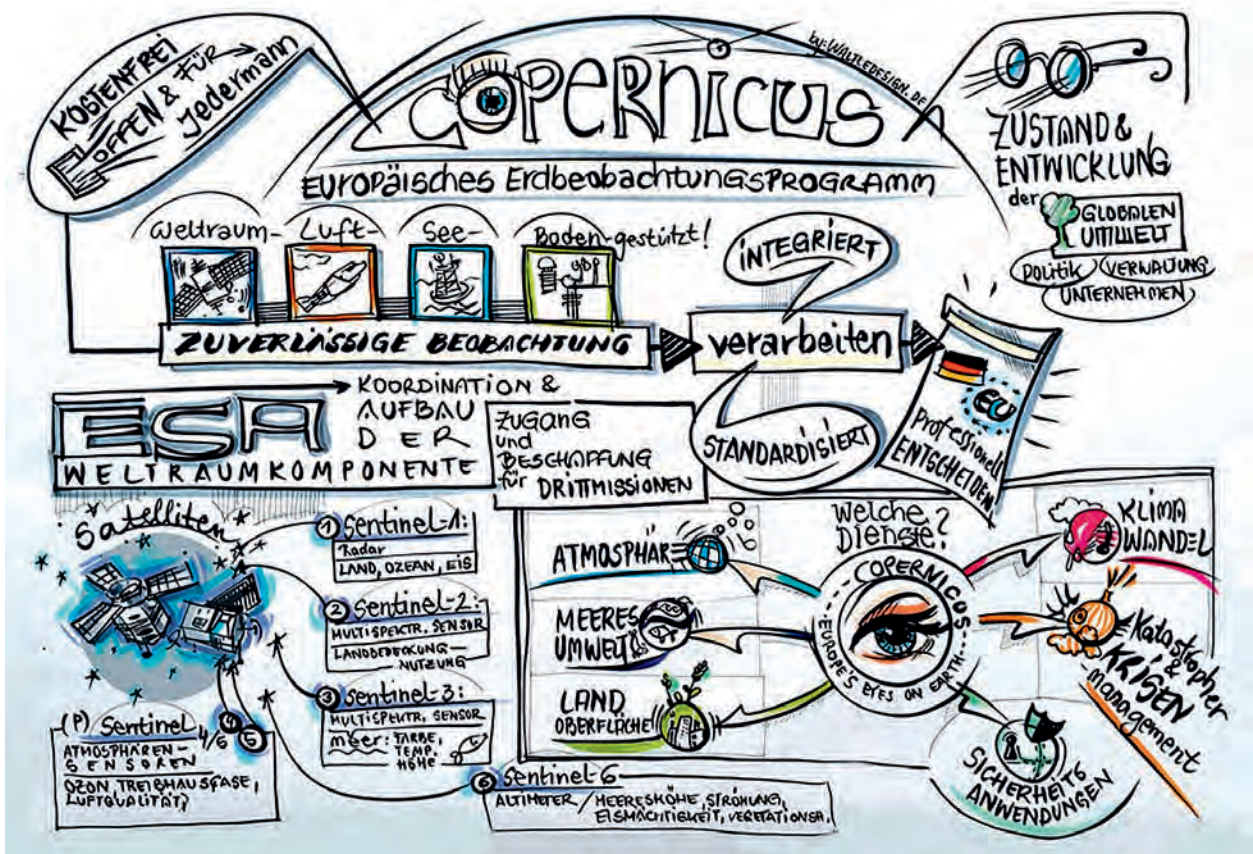 KOSTENFREI
OFFEN & FÜR
Jedermann
by: WALTLEDESIGN.DE
COPERNICUS
EUROPÄISCHES ErdbeobachtungsPROGRAMM
ZUSTAND &
ENTWICKLUNG
der GLOBALEN
UMWELT
Politik VERWALTUNG
UNTERNEHMEN
Weltraum- Luft- See- Boden-gestützt!
ZUVERLÄSSIGE BEOBACHTUNG
INTEGRIERT
verarbeiten
STANDARDISIERT
EU
Professionell
ENTSCHEIDEN
ESA
KOORDINATION &
AUFBAU
DER
WELTRAUMKOMPONENTE
ZUGANG
und
BESCHAFFUNG
für DRITTMISSIONEN
Satelliten
1 Sentinel-1:
Radar
LAND, OZEAN, EIS
2 Sentinel-2:
MULTISPEKTR. SENSOR
LANDBEDECKUNG-
NUTZUNG
3 Sentinel-3:
MULTISPEKTR. SENSOR
meer: FARBE,
TEMP.
HÖHE
4
5
(P) Sentinel 4/5
ATMOSPHÄREN-
SENSOREN
OZON, TREIBHAUSGASE,
LUFTQUALITÄT,
6 Sentinel-6
ALTIMETER / MEERESHÖHE, STRÖMUNG,
EISMÄCHTIGKEIT, VEGETATIONSH.
Welche
Dienste?
COPERNICUS
EUROPE'S EYES ON EARTH
ATMOSPHÄR
MEERES
UMWELT
LAND
OBERFLÄCHE
KLIMA
WANDEL
Katastrophen
&
KRISEN
management
SICHERHEITS
ANWENDUNGEN